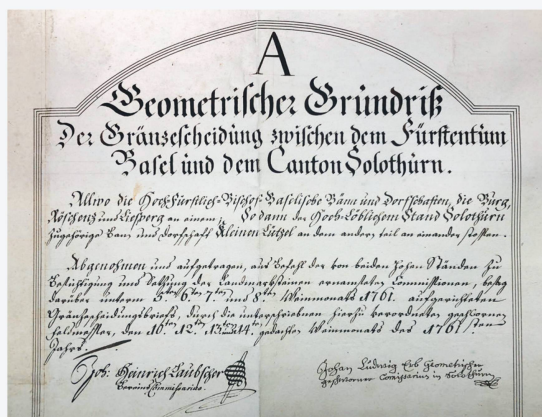 A
Geometrischer Grundriß
Der Gränzscheidung zwischen dem Fürstentum
Basel und dem Canton Solothurn.
Allwo die Hochfürstlich-Bischof-Baselische Bänn und Dorfschaften, die Burg,
Röschenz und Liesperg an einem; So dann der Hoch-Loblichem Stand Solothurn
zugehörige Bann und Dorfschaft Kleinen Lützel an dem andern teil an einander stossen.
Abgenohmen und aufgetragen, aus Befehl der von beiden Hohen Ständen zu
Besichtigung und Setzung der Landmarksteinen ernannten Commissionen, besag
darüber unterm 5ten 6ten 7ten und 8ten Weinmonats 1761. aufgerichteten
Gränzscheidungsbriefs, durch die unterschriebene hierzu verordneten geschwornen
feldmesser, den 10ten 12ten 13ten 14ten gedachten Weinmonats des 1761sten
Jahrs.
Joh: Heinrich Laubscher
Johan Ludwig Erb Geometrischer
geschworner Comissarius in Solothurn